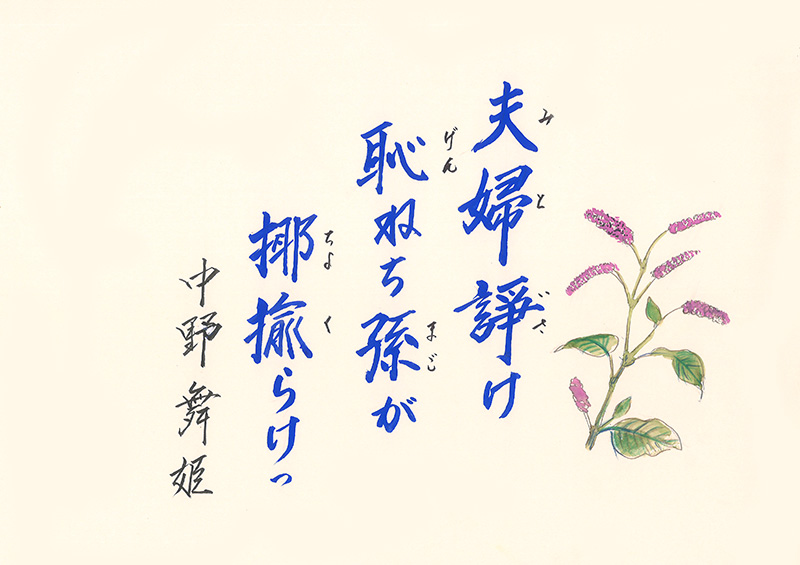 夫婦諍け
みとぃさ
恥ねち孫が
げんまご
揶揄らけっ
ちよく
中野舞姫